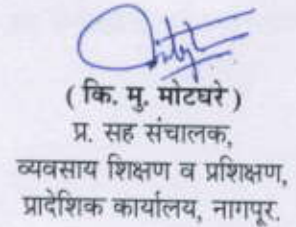 ( कि. मु. मोटघरे )
प्र. सह संचालक,
व्यवसाय शिक्षण व प्रशिक्षण,
प्रादेशिक कार्यालय, नागपूर.